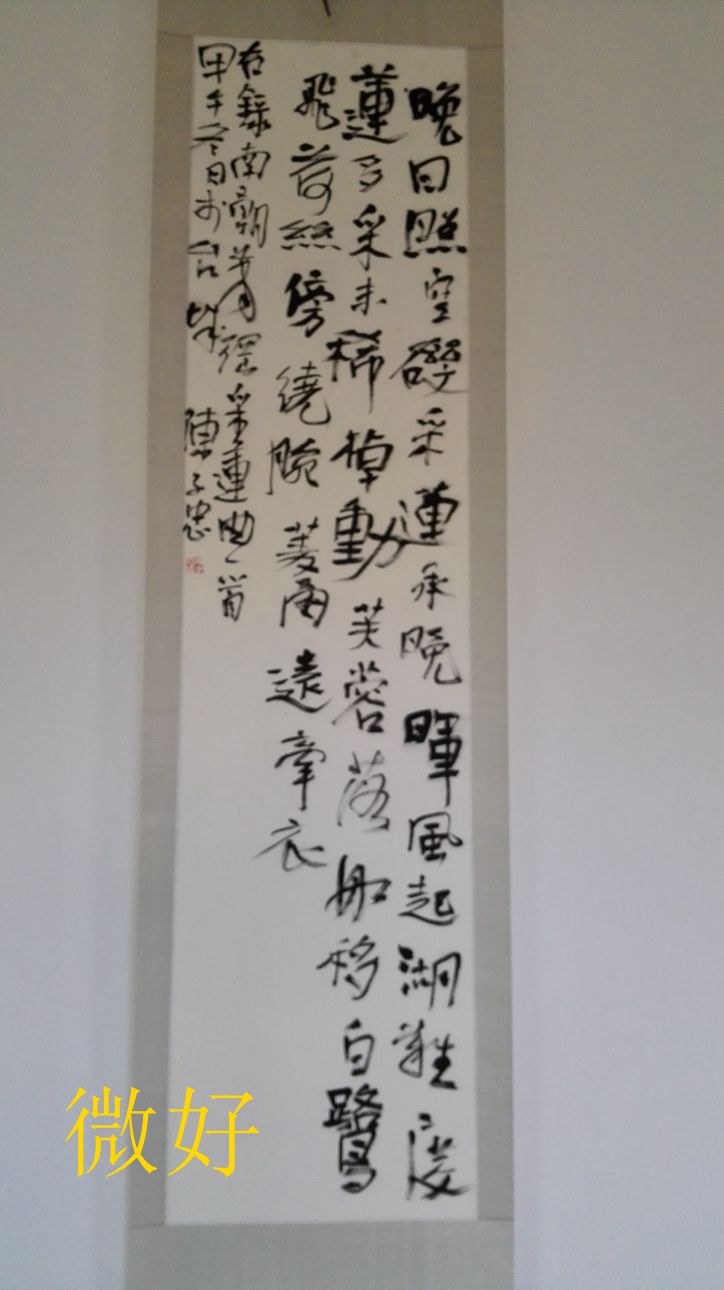 晚日照空磯采蓮承晚暉風起湖難度
蓮多采未稀棹動芙蓉落船移白鷺
飛荷絲傍繞腕菱角遠牽衣
右錄南朝蕭綱采蓮曲一首
甲午冬日於台 陳子忠
微好